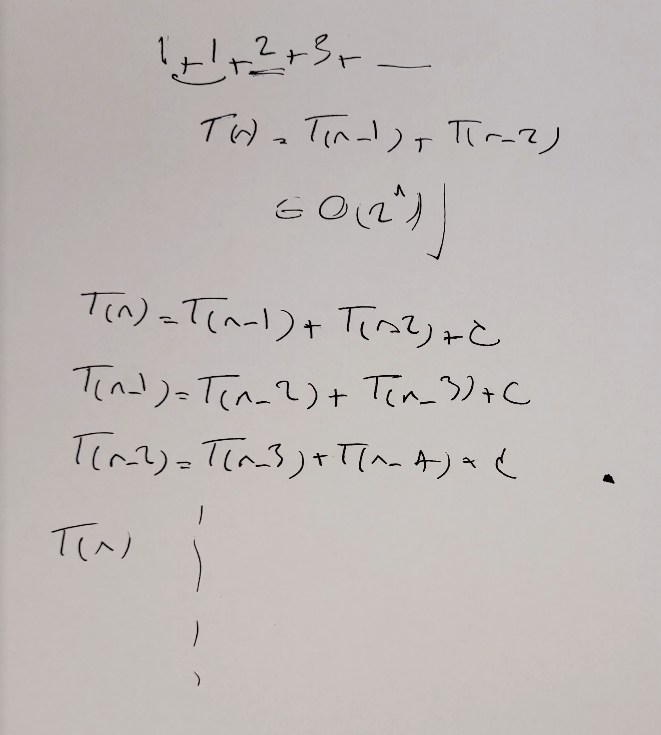 1+1+2+3+ __
T(n) = T(n-1) + T(n-2)
∈ O(2^n)
T(n) = T(n-1) + T(n-2) + C
T(n-1) = T(n-2) + T(n-3) + C
T(n-2) = T(n-3) + T(n-4) + C
T(n)